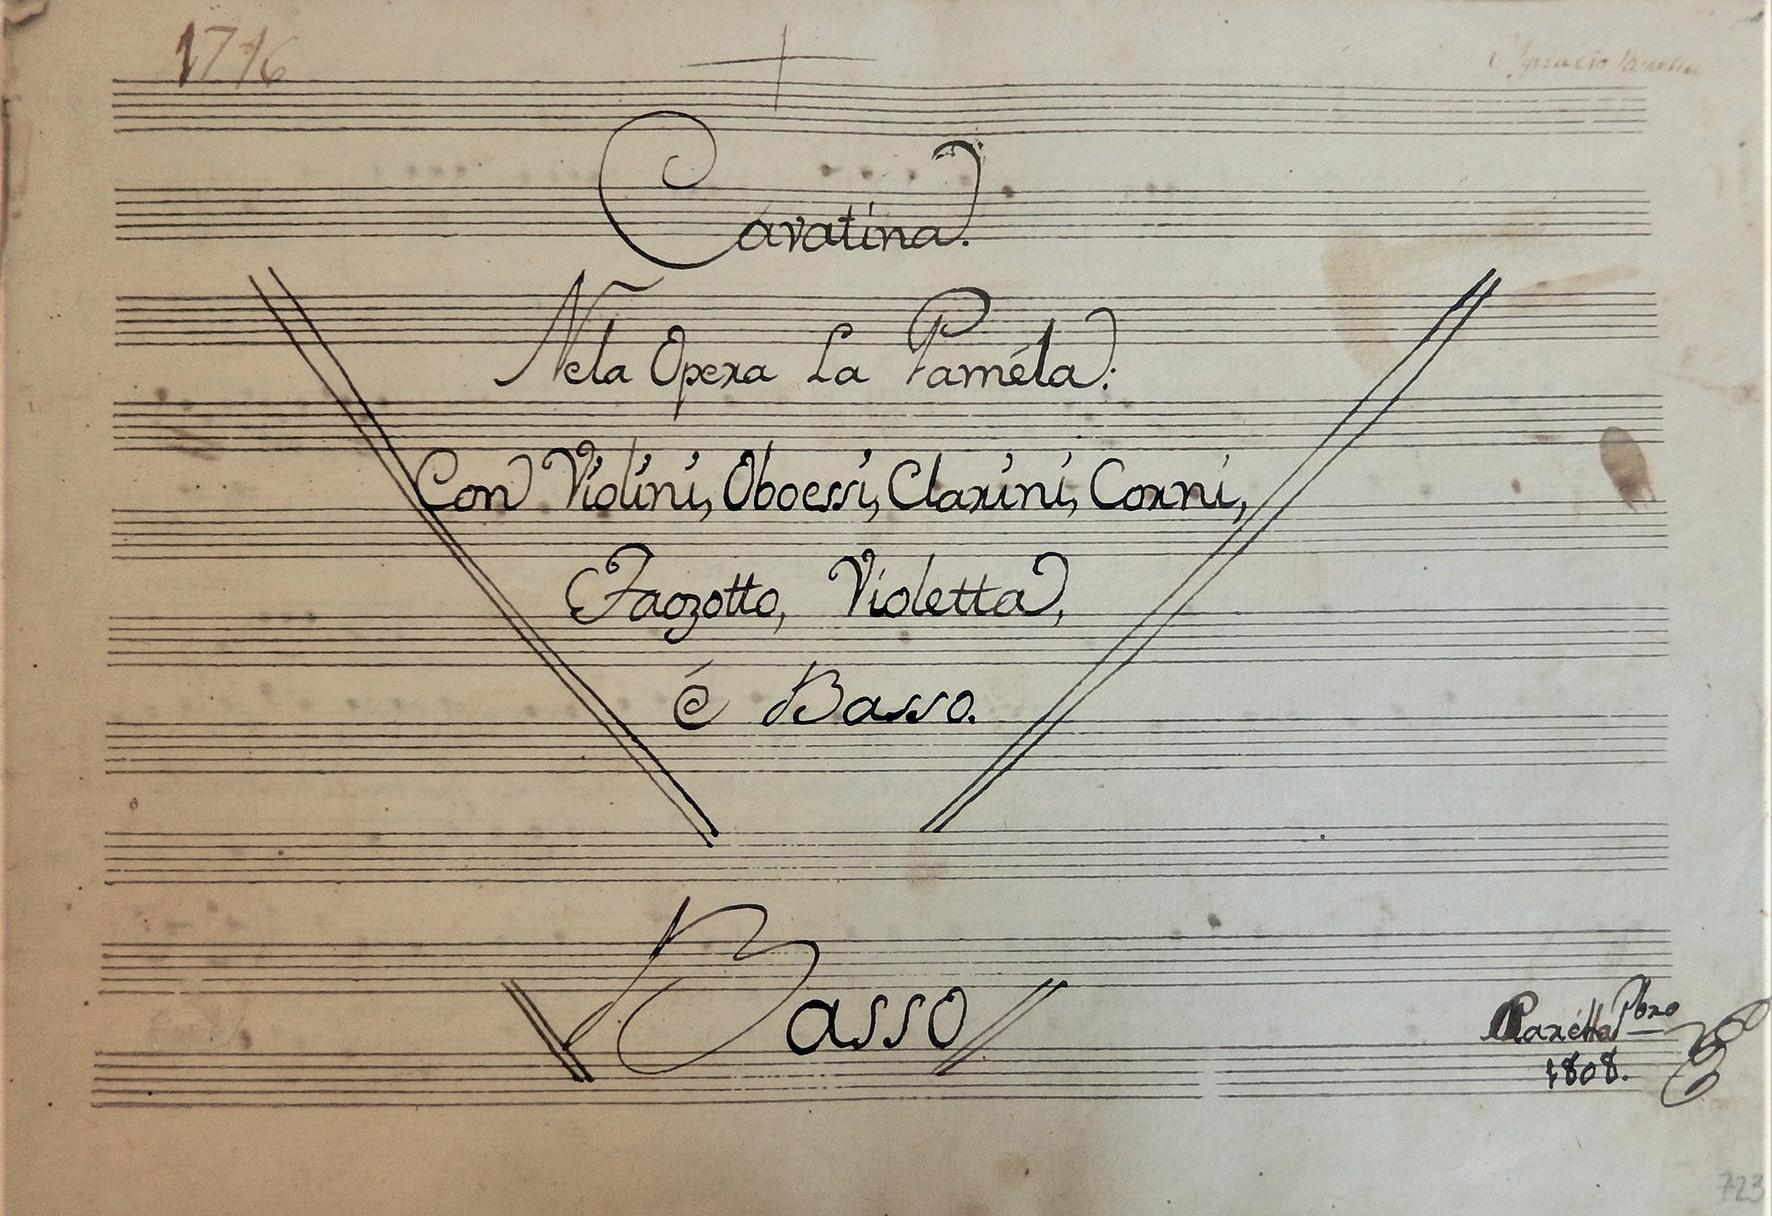 1716
Ignacio Parella
Cavatina.
Nela Opera La Paméla:
Con Violini, Oboessi, Clarini, Corni,
Fagotto, Violetta,
é Basso.
Basso
Parélla Pbro
1808.
723